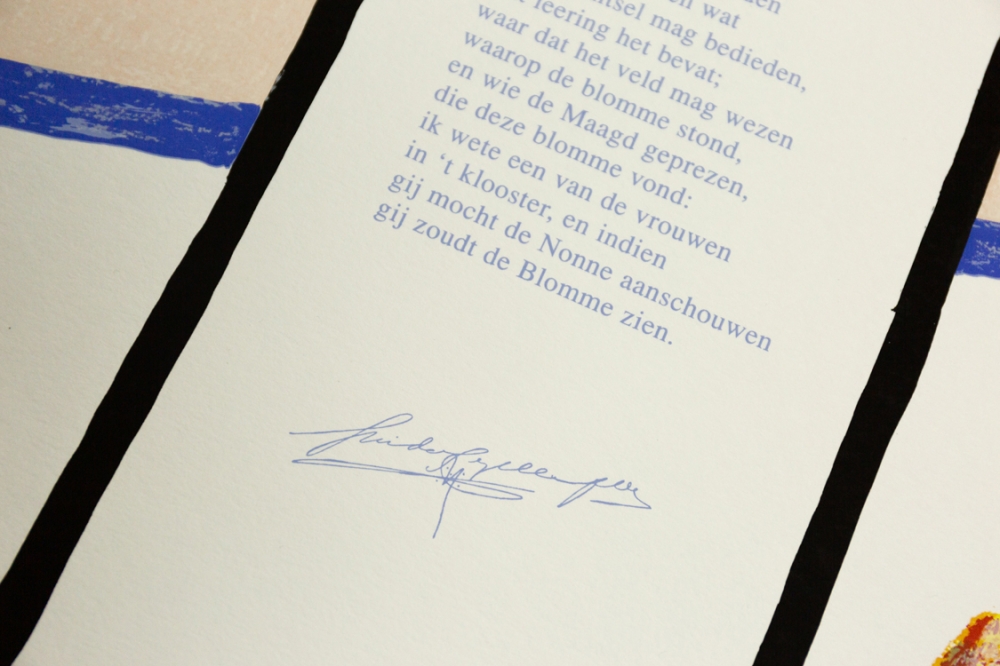 en wat
mag bedieden,
leering het bevat;
waar dat het veld mag wezen
waarop de blomme stond,
en wie de Maagd geprezen,
die deze blomme vond:
ik wete een van de vrouwen
in ‘t klooster, en indien
gij mocht de Nonne aanschouwen
gij zoudt de Blomme zien.